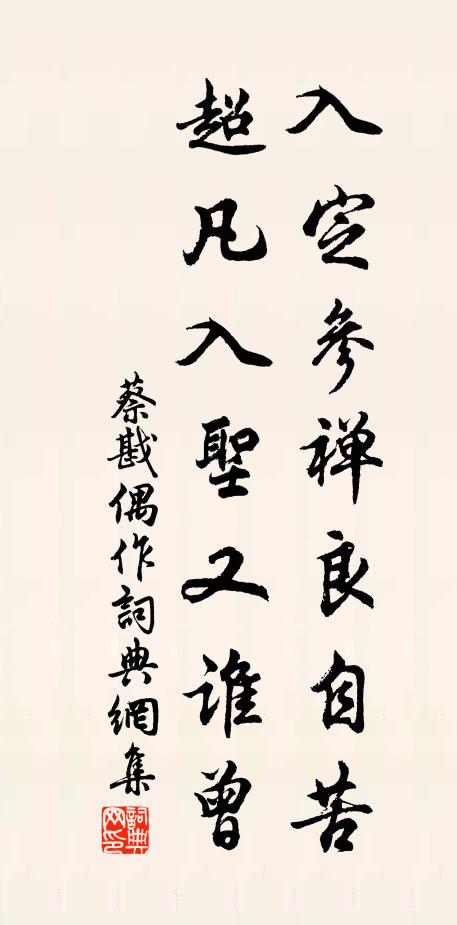 入定參禅良自苦
超凡入聖又誰曾
蔡戡偶作詞典網集
詞典网印